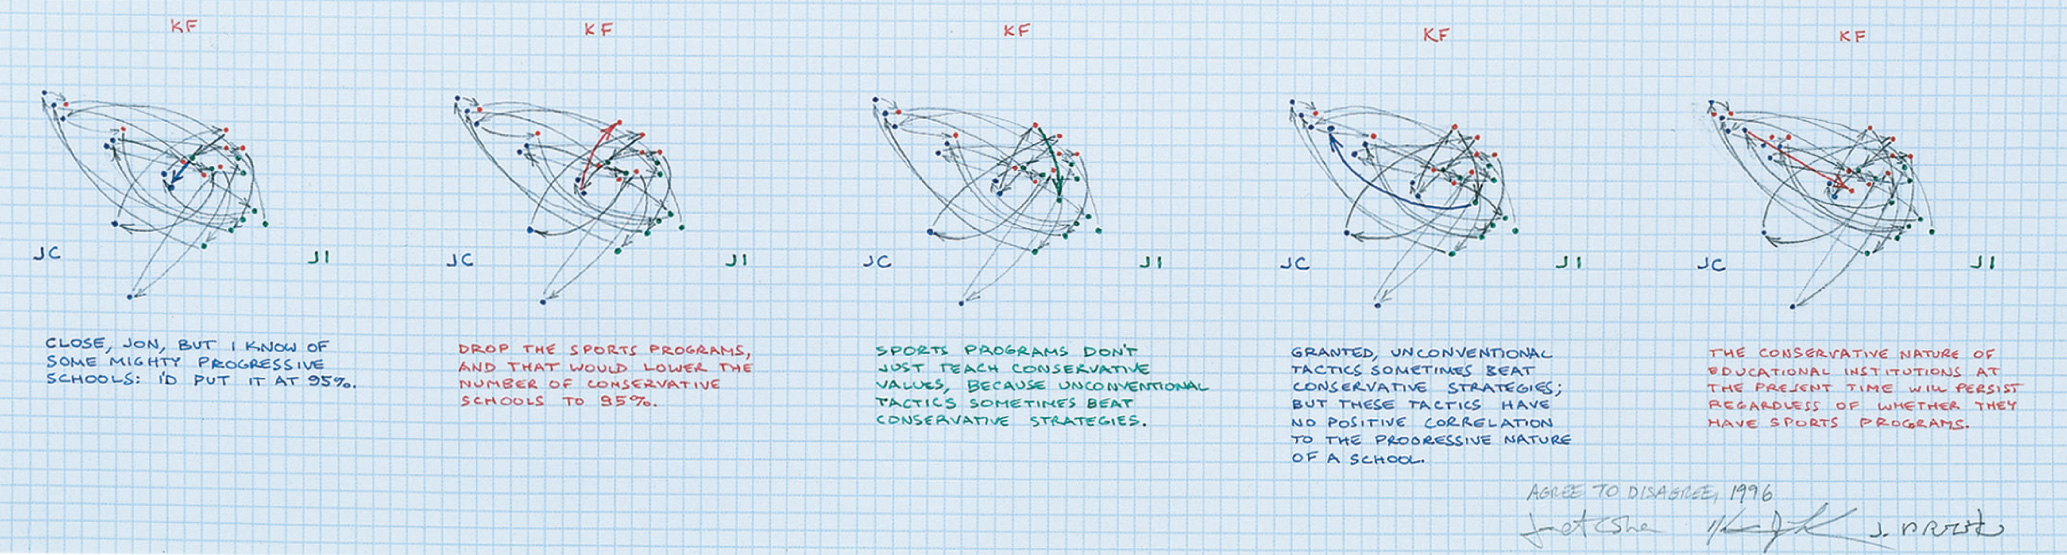 KF
KF
KF
KF
KF
JC
JI
JC
JI
JC
JI
JC
JI
JC
JI
CLOSE, JON, BUT I KNOW OF
SOME MIGHTY PROGRESSIVE
SCHOOLS: I'D PUT IT AT 95%.
DROP THE SPORTS PROGRAMS,
AND THAT WOULD LOWER THE
NUMBER OF CONSERVATIVE
SCHOOLS TO 85%.
SPORTS PROGRAMS DON'T
JUST TEACH CONSERVATIVE
VALUES, BECAUSE UNCONVENTIONAL
TACTICS SOMETIMES BEAT
CONSERVATIVE STRATEGIES.
GRANTED, UNCONVENTIONAL
TACTICS SOMETIMES BEAT
CONSERVATIVE STRATEGIES;
BUT THESE TACTICS HAVE
NO POSITIVE CORRELATION
TO THE PROGRESSIVE NATURE
OF A SCHOOL.
THE CONSERVATIVE NATURE OF
EDUCATIONAL INSTITUTIONS AT
THE PRESENT TIME WILL PERSIST
REGARDLESS OF WHETHER THEY
HAVE SPORTS PROGRAMS.
AGREE TO DISAGREE, 1996